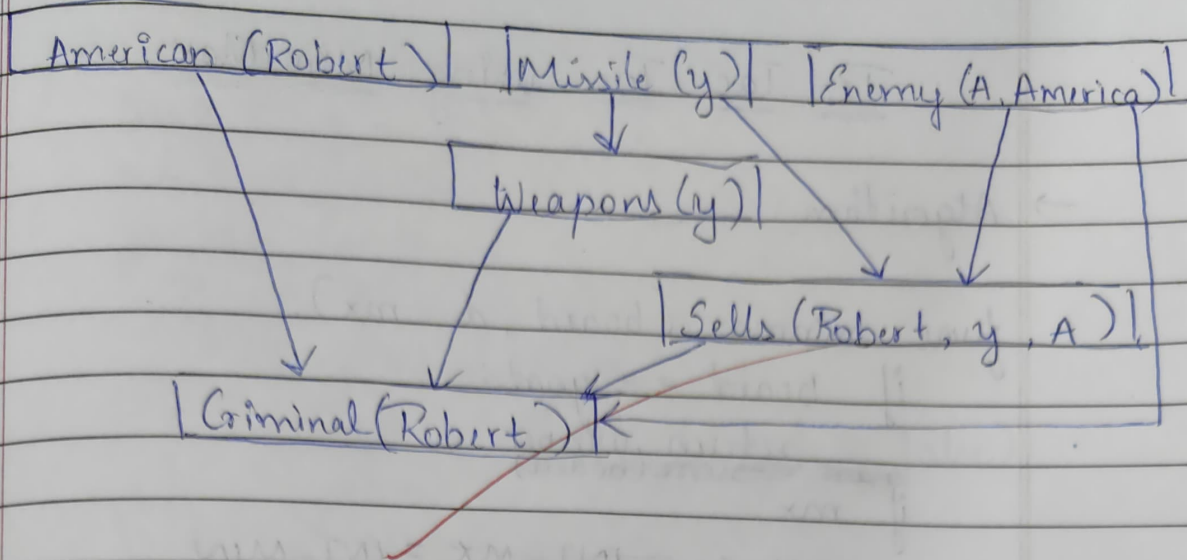 American (Robert) Missile (y) Enemy (A, America)
Weapons (y)
Sells (Robert, y, A)
Criminal (Robert)